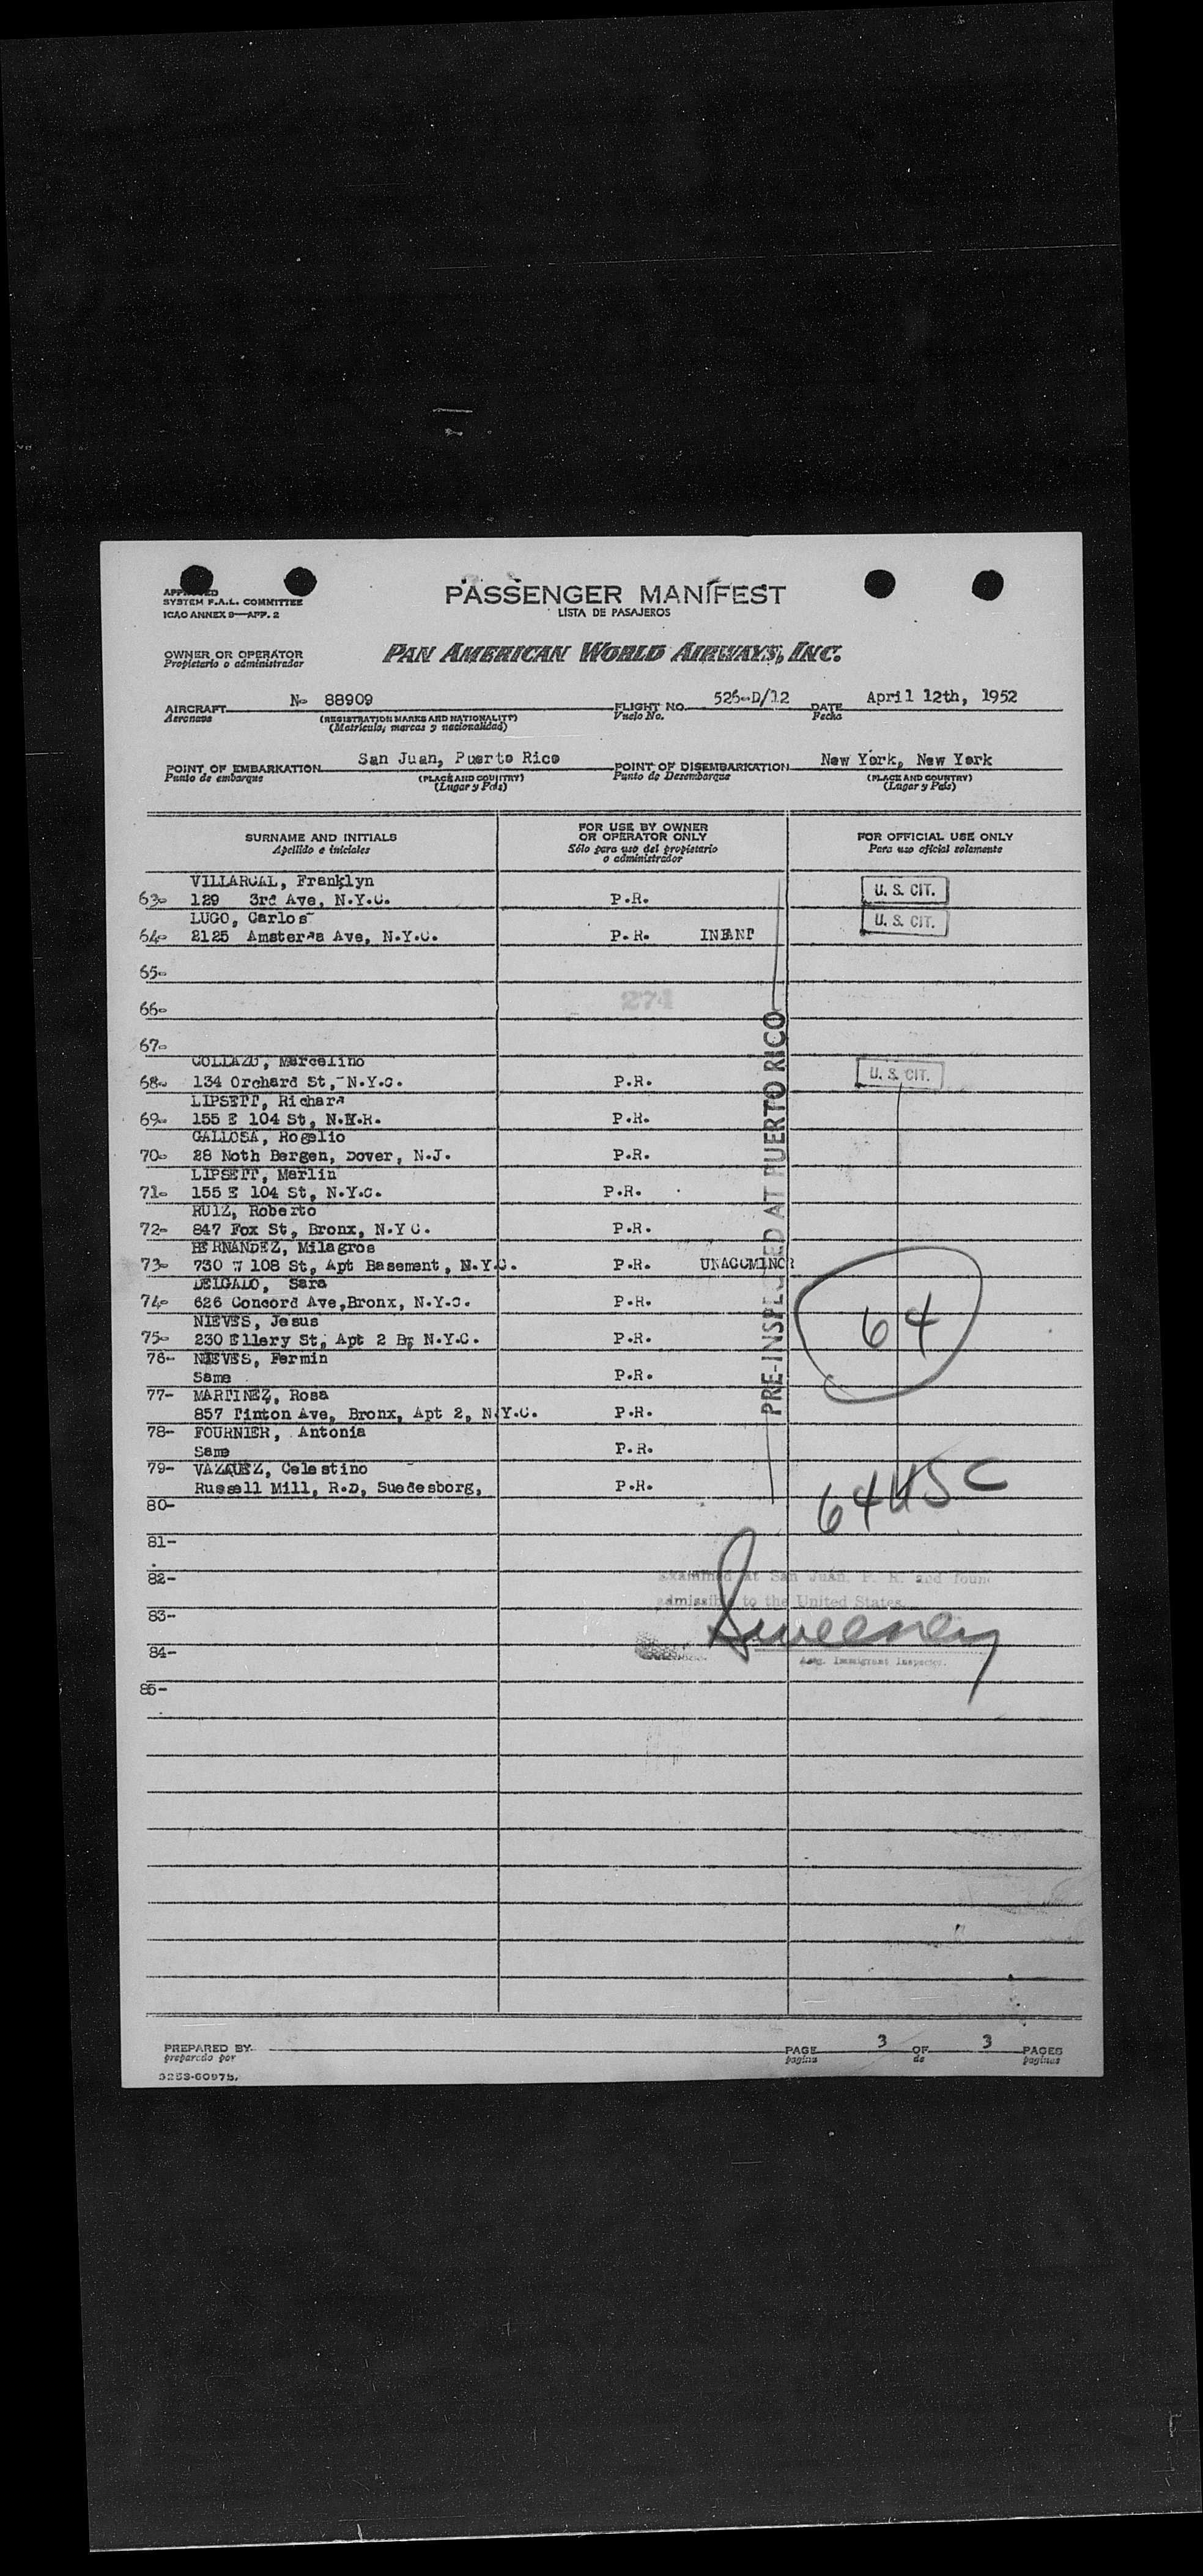 PASSENGER MANIFEST
LISTA DE PASAJEROS
SYSTEM F.A.L. COMMITTEE
ICAO ANNEX 9—APP. 2
OWNER OR OPERATOR
Propietario o administrador
PAN AMERICAN WORLD AIRWAYS, INC.
AIRCRAFT N- 88909 FLIGHT NO. 526-D/12 DATE April 12th, 1952
Aeronave (REGISTRATION MARKS AND NATIONALITY) Vuelo No. Fecha
(Matrícula, marcas y nacionalidad)
POINT OF EMBARKATION San Juan, Puerto Rico POINT OF DISEMBARKATION New York, New York
Punto de embarque (PLACE AND COUNTRY) Punto de Desembarque (PLACE AND COUNTRY)
(Lugar y País) (Lugar y País)
SURNAME AND INITIALS FOR USE BY OWNER OR OPERATOR ONLY FOR OFFICIAL USE ONLY
Apellido e iniciales Sólo para uso del propietario o administrador Para uso oficial solamente
VILLARCAL, Franklyn
63- 129 3rd Ave, N.Y.C. P.R. U. S. CIT.
LUGO, Carlos
64- 2125 Ave, N.Y.C. P.R. INFANT U. S. CIT.
65-
66- 274
67-
COLLAZO, Marcelino
68- 134 Orchard St, N.Y.C. P.R. U. S. CIT.
LIPSETT, Richard
69- 155 E 104 St, P.R.
GALLOSA, Rogelio
70- 28 Noth Bergen, Dover, N.J. P.R.
LIPSETT, Marlin
71- 155 E 104 St, N.Y.C. P.R.
RUIZ, Roberto
72- 847 Fox St, Bronx, N.Y C. P.R.
HERNANDEZ, Milagros
73- 730 W 108 St, Apt Basement, N.Y.C. P.R. UNACOMINOR
DELGADO, Sara
74- 626 Concord Ave,Bronx, N.Y.C. P.R.
NIEVES, Jesus
75- 230 Ellery St, Apt 2 N.Y.C. P.R.
76- NIEVES, Fermin
Same P.R.
77- MARTINEZ, Rosa
857 Tinton Ave, Bronx, Apt 2, N.Y.C. P.R.
78- FOURNIER, Antonia
Same P.R.
79- VAZQUEZ, Celestino
Russell Mill, R.D, Suedesborg, P.R.
80-
81-
82-
83-
84-
85-
PRE-INSPECTED AT PUERTO RICO
64
64 USC
Examined at San Juan, P. R. and found
admissible to the United States.
Sweeney
Immigrant Inspector.
PREPARED BY PAGE 3 OF 3 PAGES
preparado por pagina de paginas